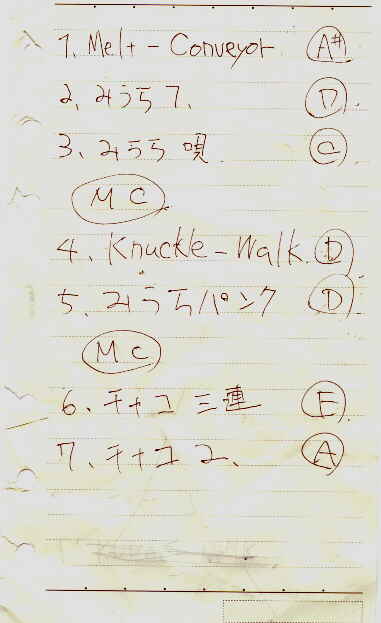 1. Melt-Conveyor A#
2、みうら 1、 D
3、みうら 唄 C
MC
4、Knuckle-Walk D
5、みうらパンク D
MC
6、チャコ 三連 E
7、チャコ 2、 A